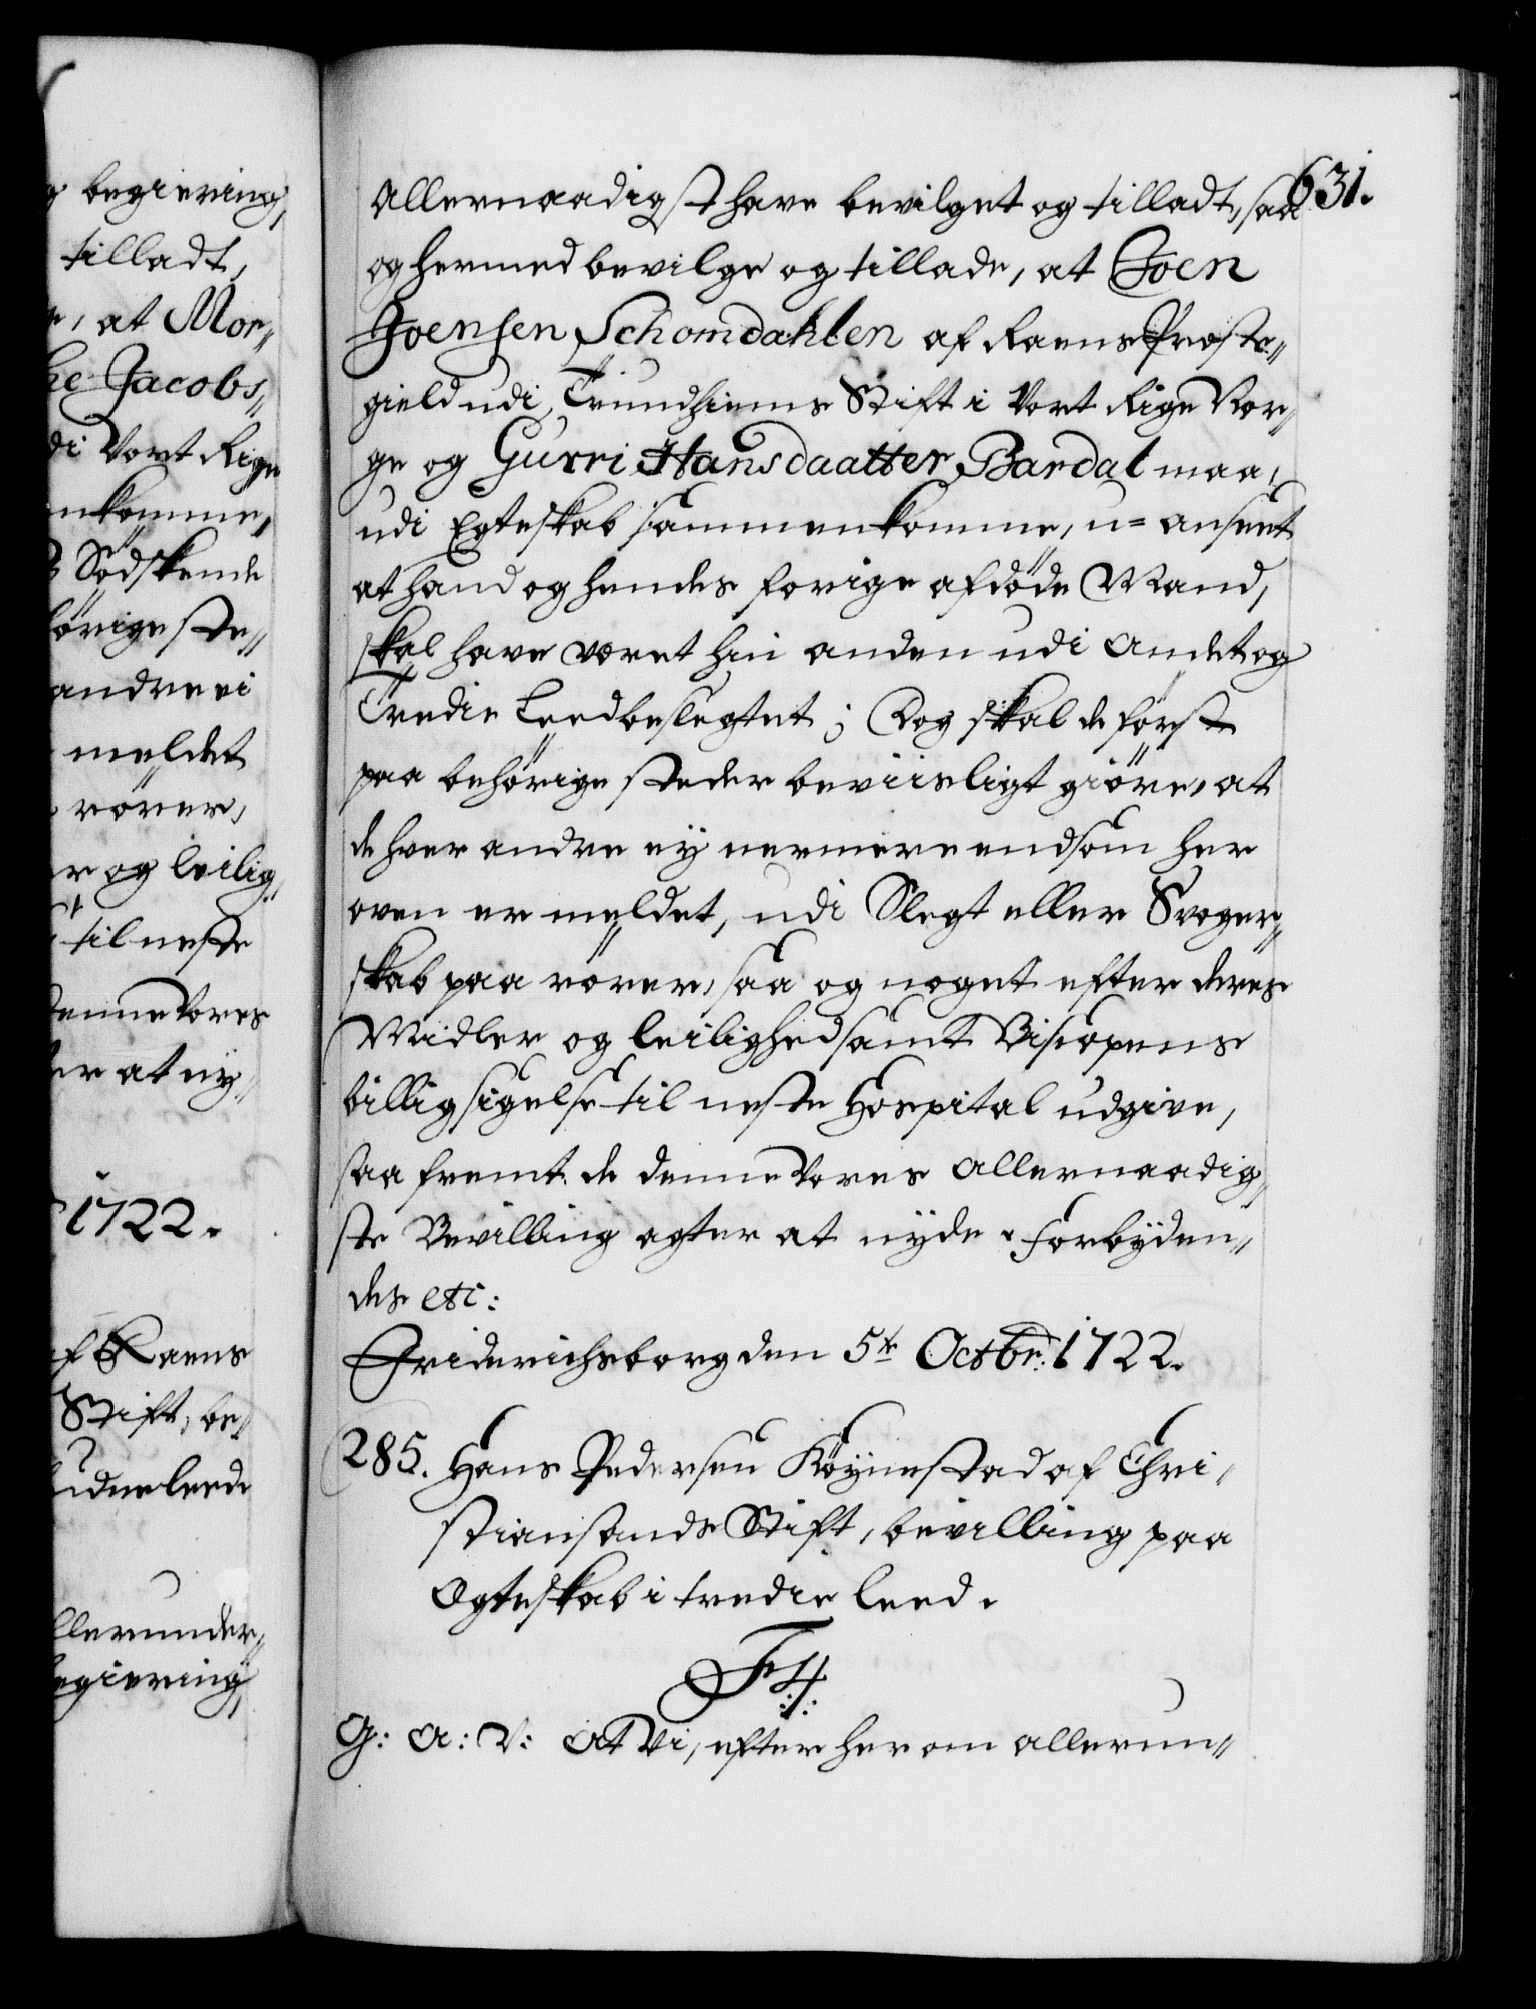 g begiering,
tilladt,
e, at Mor„
he Jacobs„
di Vort Rige
nkomme,
Södskende
hörige ste„
andre ei
meldet
rörer,
er og leilig„
til neste
denne Vores
ter at ny„
1722.
af Raens
Stift, be„
udne leed
llerunder„
egiering,
631.
Allernaadigst have bevilget og tilladt, saa
og hermed bevilge og tillade, at Joen
Joensen Schomdahlen af Raens Preste„
gield udi Trundhiems Stift i Vort Rige Nor„
ge og Gurri Hansdaatter Bardal maa,
udi Egteskab sammenkomme, u= anseet
at hand og hendes forige afdöde Mand,
skal have veret hin anden udi Andet og
Tredie Leed beslegtet; Dog skal de först
paa behörige steder beviisligt giöre, at
de hver andre ey nermere end som her
oven er meldet, udi Slegt eller Svoger„
skab paa rörer, saa og noget efter deres
Midler og leilighed samt Biscopens
billigsigelse til neste Hospital udgive,
saa fremt de denne Vores Allernaadig„
ste Bevilling agter at nyde. Forbyden„
des etc:
Friderichsborg den 5te Octbr: 1722.
285. Hans Pedersen Köynestad af Chri„
stiansands Stift, bevilling paa
Egteskab i tredie leed.
F4
G: A: V: At Vi, efter her om allerun„